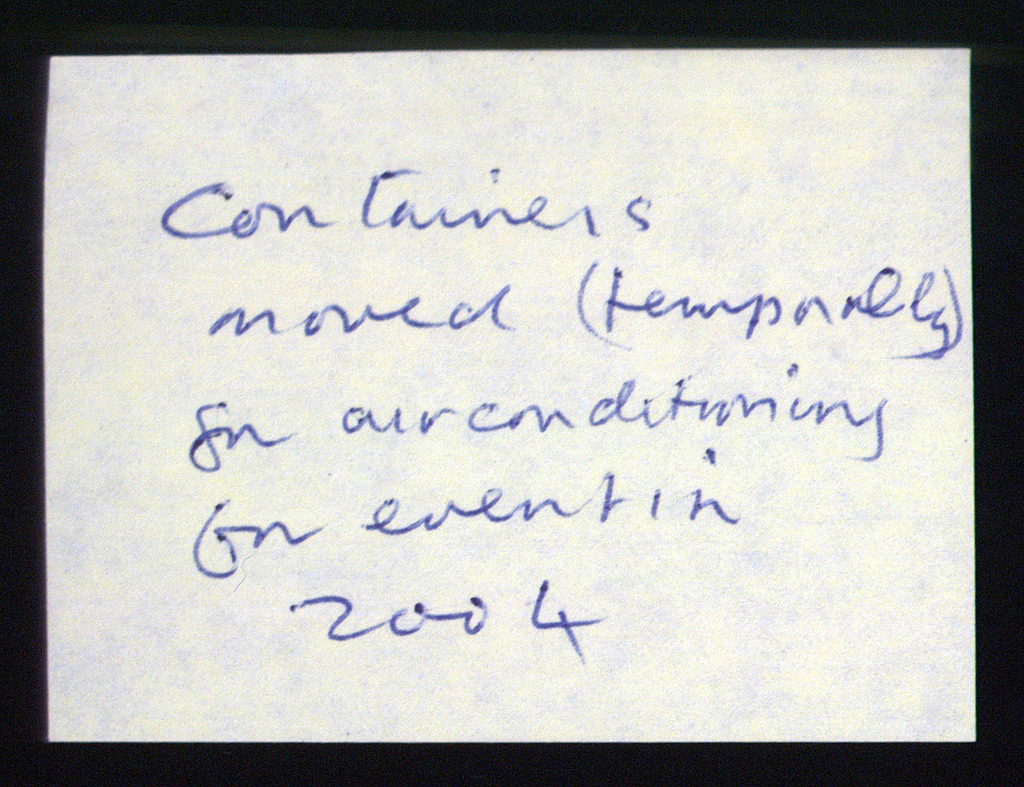 Containers
moved (temporally)
for airconditioning
for event in
2004